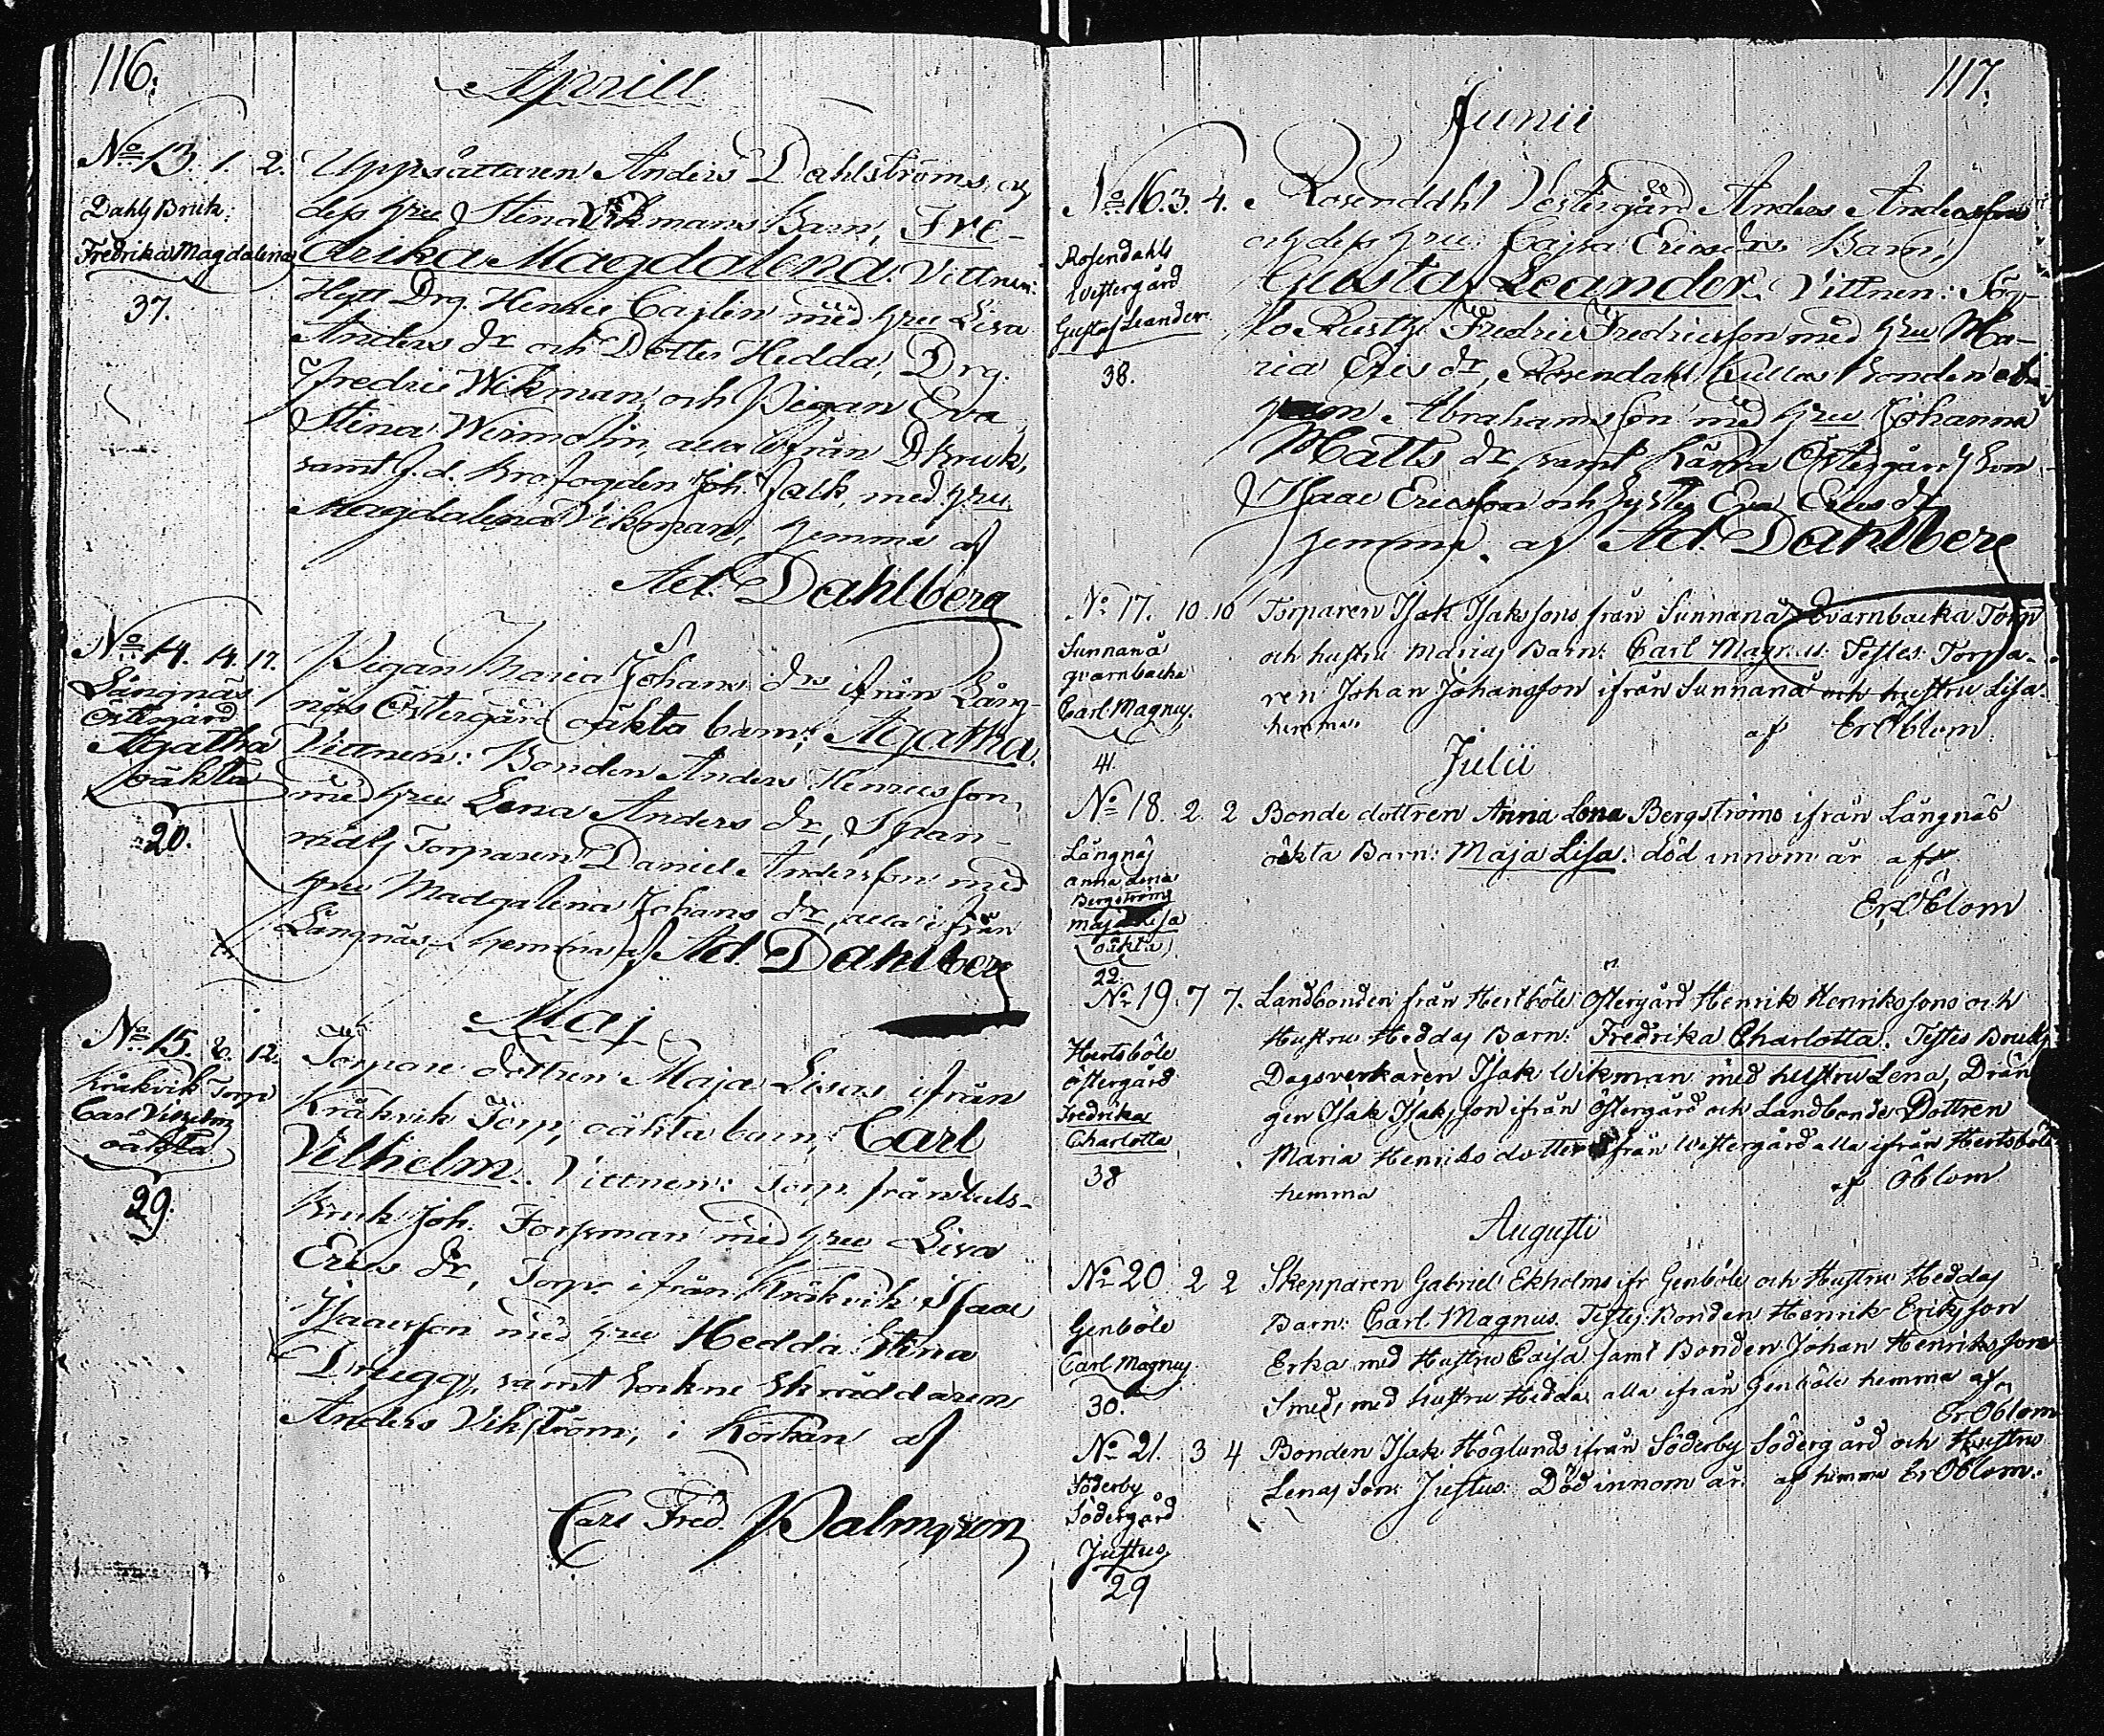 116.
Aprill
No 13. 1. 2. Uppsåttaren Anders Dahlströms och
Dahlsbruk: dess hru Stina Vikmans Barn, Fre-
Fredrika Magdalena drika Magdalena. Vittnen:
37. Drg. Henric Cajlen med hru Lisa
Anders dr och Dotter Hedda, Drg.
Fredric Wikman, och Pigan Eva
Stina Wirmolin, alla ifrån DBruk,
samt Joh. Falk, med hru
Magdalena Vikman, hemma af
Ad. Dahlberg
No 14. 14. 17. Pigan Maria Johans drs ifrån Lång-
Långnäs näs Östergård oäkta barn; Agatha.
Östergård
Agatha Vittnen: Bonden Anders Henricsson,
oäkta med hru Lena Anders dr,
20. Torparen Daniel Andersson med
hru Madgalena Johans dr, alla ifrån
Långnäs, hemma af Ad. Dahlberg
Maj
No 15. 8. 12. Torpare dottren Maja Lisas ifrån
Kråkvik Torp Kråkvik Torp, oäkta barn; Carl
Carl Vilhelm
oäkta Vilhelm. Vittnen: Torp. från Dals-
29. Bruk Joh. Forsman med hru Lisa
Erics dr, Torpr ifrån Kråkvik Isaac
Isaacsson med hru Hedda Stina
Drugg, samt Sockne Skräddaren
Anders Vikström, i Kÿrkan af
Carl Fred. Palmgren
117.
Junii
No 16. 3. 4. Rosendahl Vestergård Anders Anderssons
och dess hru Cajsa Ericsdrs Barn,
Rosendahls
Westergård Gustaf Leander. Vittnen:
Gustaf Leander Fredric Fredricsson med hru Ma-
38. ria Erics dr, Rosendahl Kullas Bonden
Abrahamsson med hru Johanna
Matts dr, samt Kärra Östergård Son
Isaac Ericsson och Syster Eva Erics dr
hemma. af Ad. Dahlberg
No 17. 10. 10 Torparen Isak Isakssons från Sunnanå Qvarnbacka Torp
Sunnanå och hustru Marias Barn: Carl Magnus. Testes: Torpa-
qvarnbacka ren Johan Johansson ifrån Sunnanå och hustru Lisa.
Carl Magnus. hemma af Er Öblom
41.
Julii
No 18. 2 2 Bonde dottren Anna Lena Bergströms ifrån Långnäs
Långnäs oäkta Barn: Maja Lisa. död innom år af
anna Lena
Bergströms Er. Öblom
maja Lisa
oäkta
22.
No 19. 7 7. Landbonden från Hertsböle Östergård Henrik Henrikssons och
Hustru Heddas Barn: Fredrika Charlotta. Testes Bruks
Hertsböle
Östergård Dagsverkaren Isak Wikman med hustru Lena, Drän
Fredrika gen Isak Isaksson ifrån Östergård och Landbonde Dottren
Charlotta Maria Henriks dotter ifrån Westergård alla ifrån Hertsböle
38 hemma af Öblom
Augusti
No 20 2 2 Skepparen Gabriel Ekholms ifr Genböle och Hustru Heddas
Genböle Barn: Carl Magnus. Testes: Bonden Henrik Eriksson
Carl Magnus. Erka med Hustru Caisa samt Bonden Johan Henriksson
30. Smeds med hustru Hedda alla ifrån Genböle hemma af
Er Öblom
No 21. 3 4 Bonden Isak Höglunds ifrån Söderby Södergård och Hustru
Söderby Lenas Son: Justus. Död innom år af hemma Er Öblom.
Södergård
Justus
29